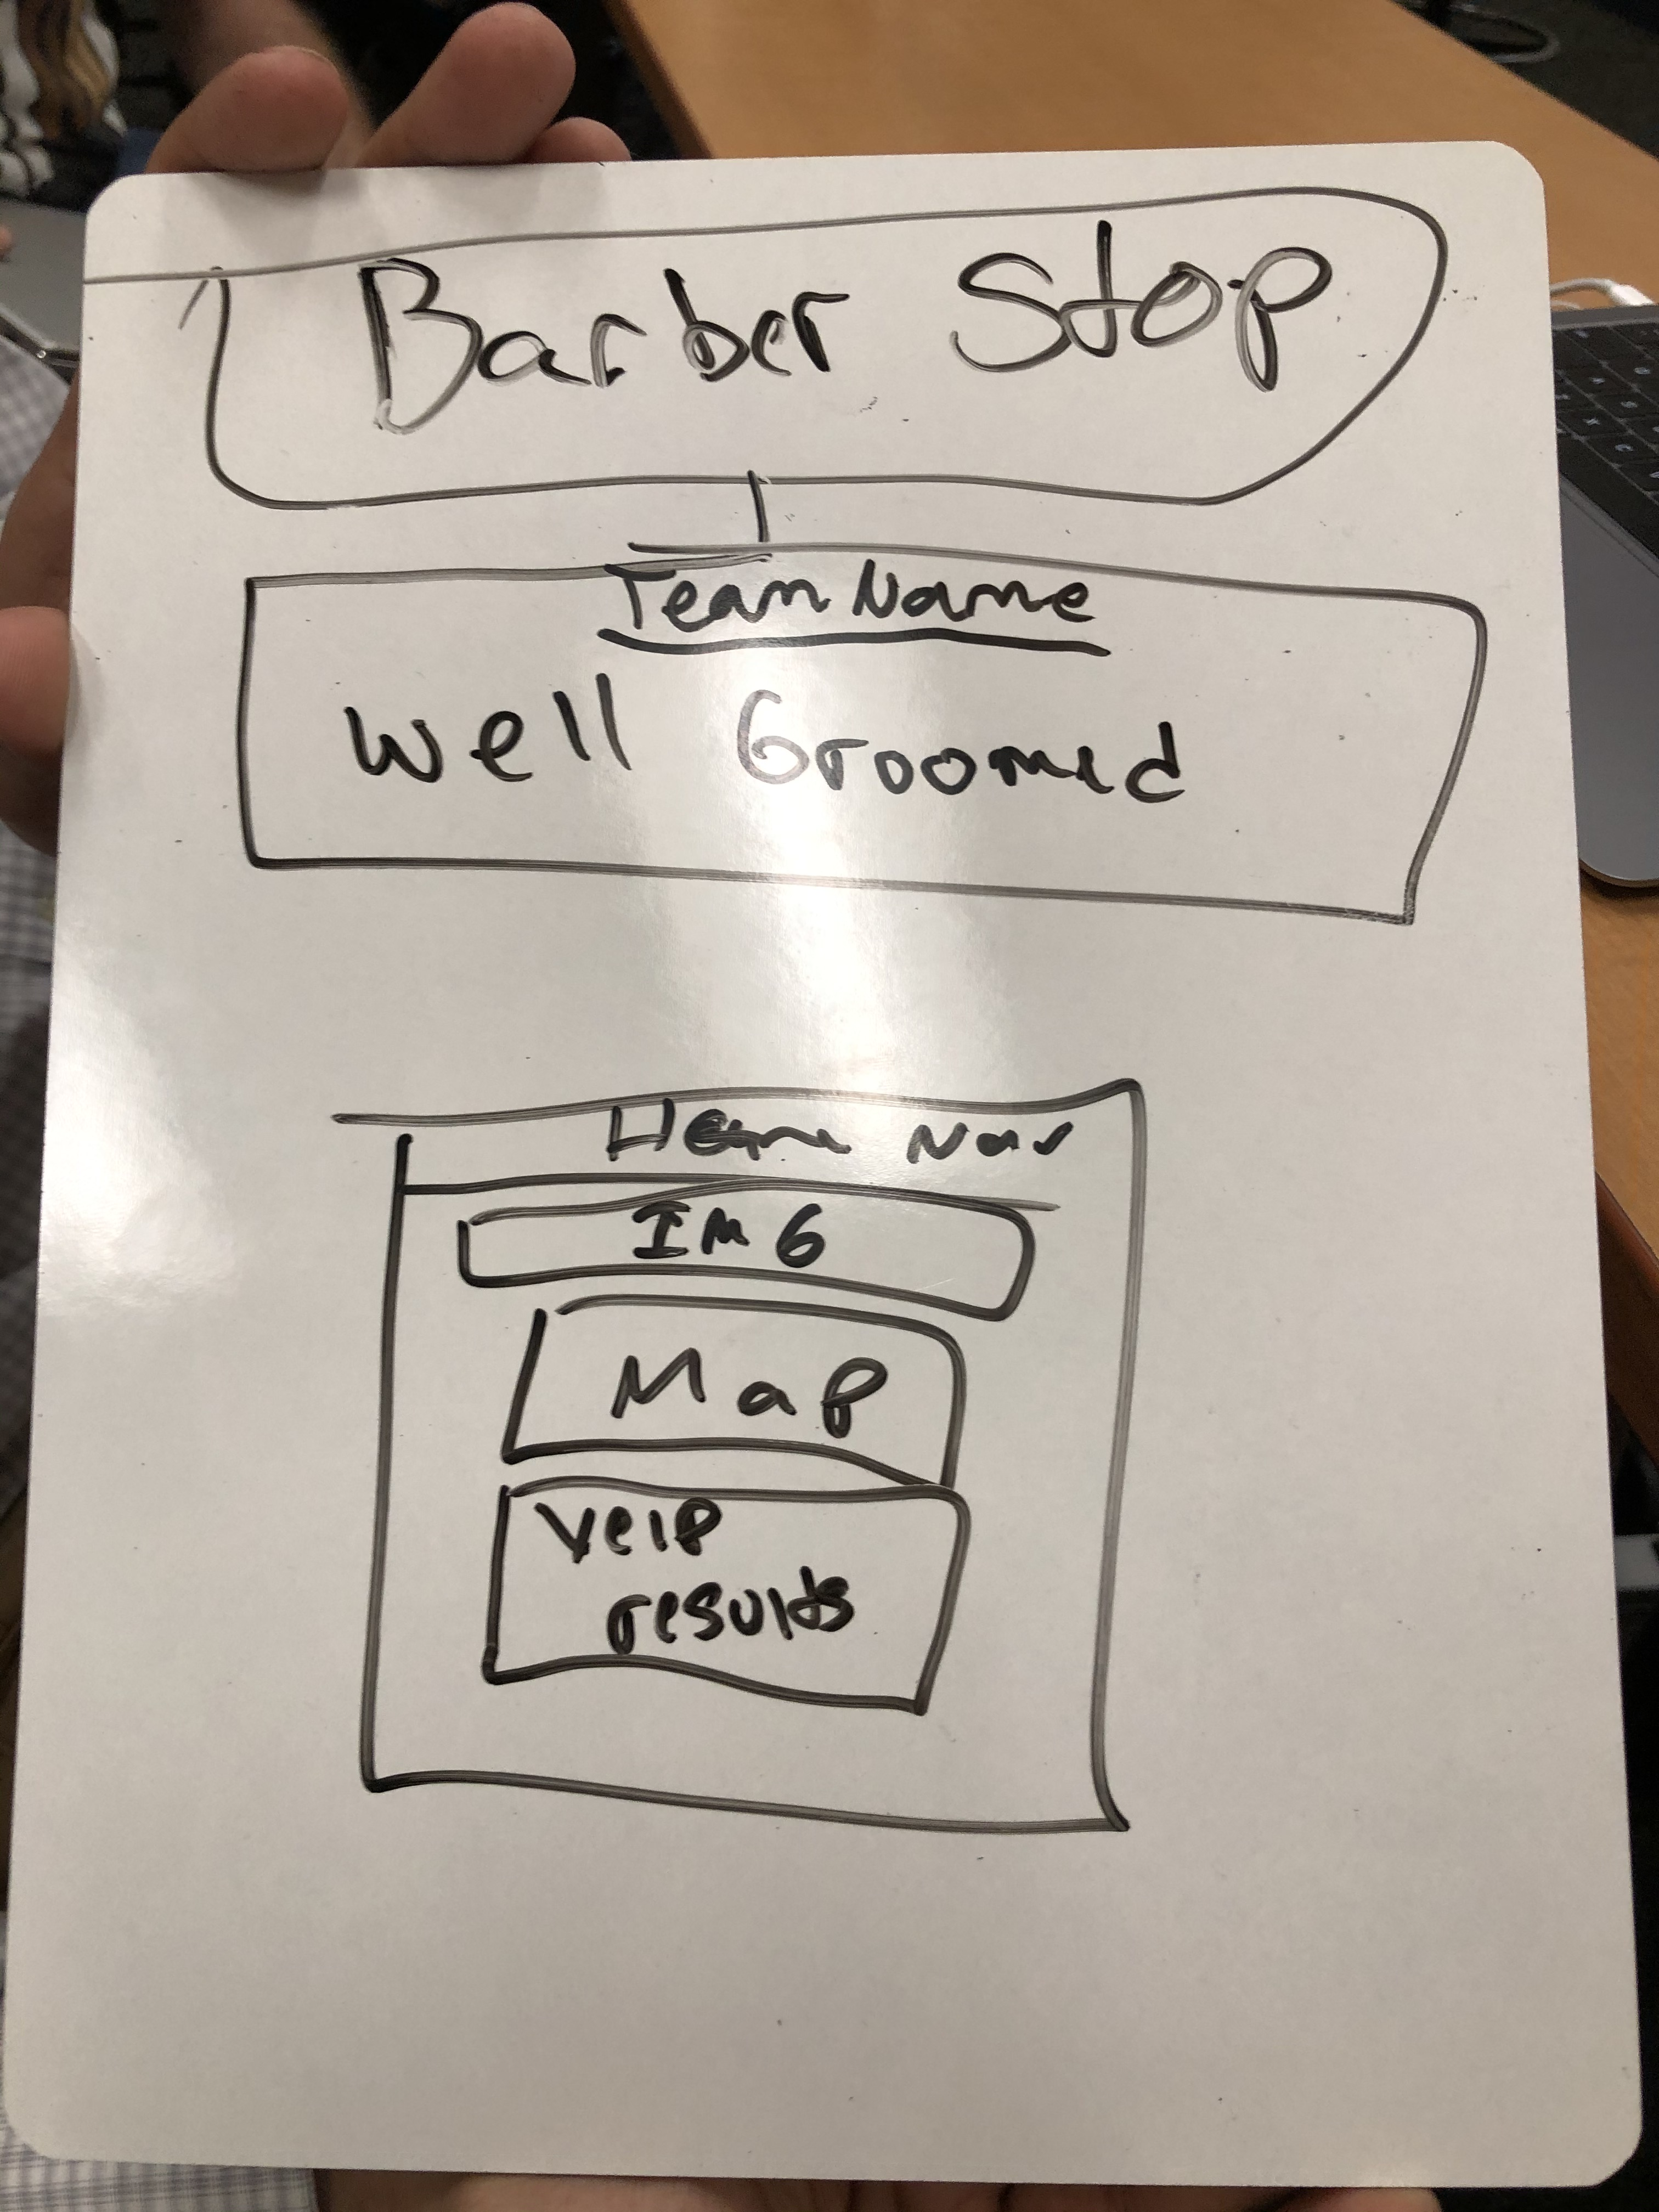 Barber Stop
Team Name
Well Groomed
Home Nav
IMG
Map
Yelp
results